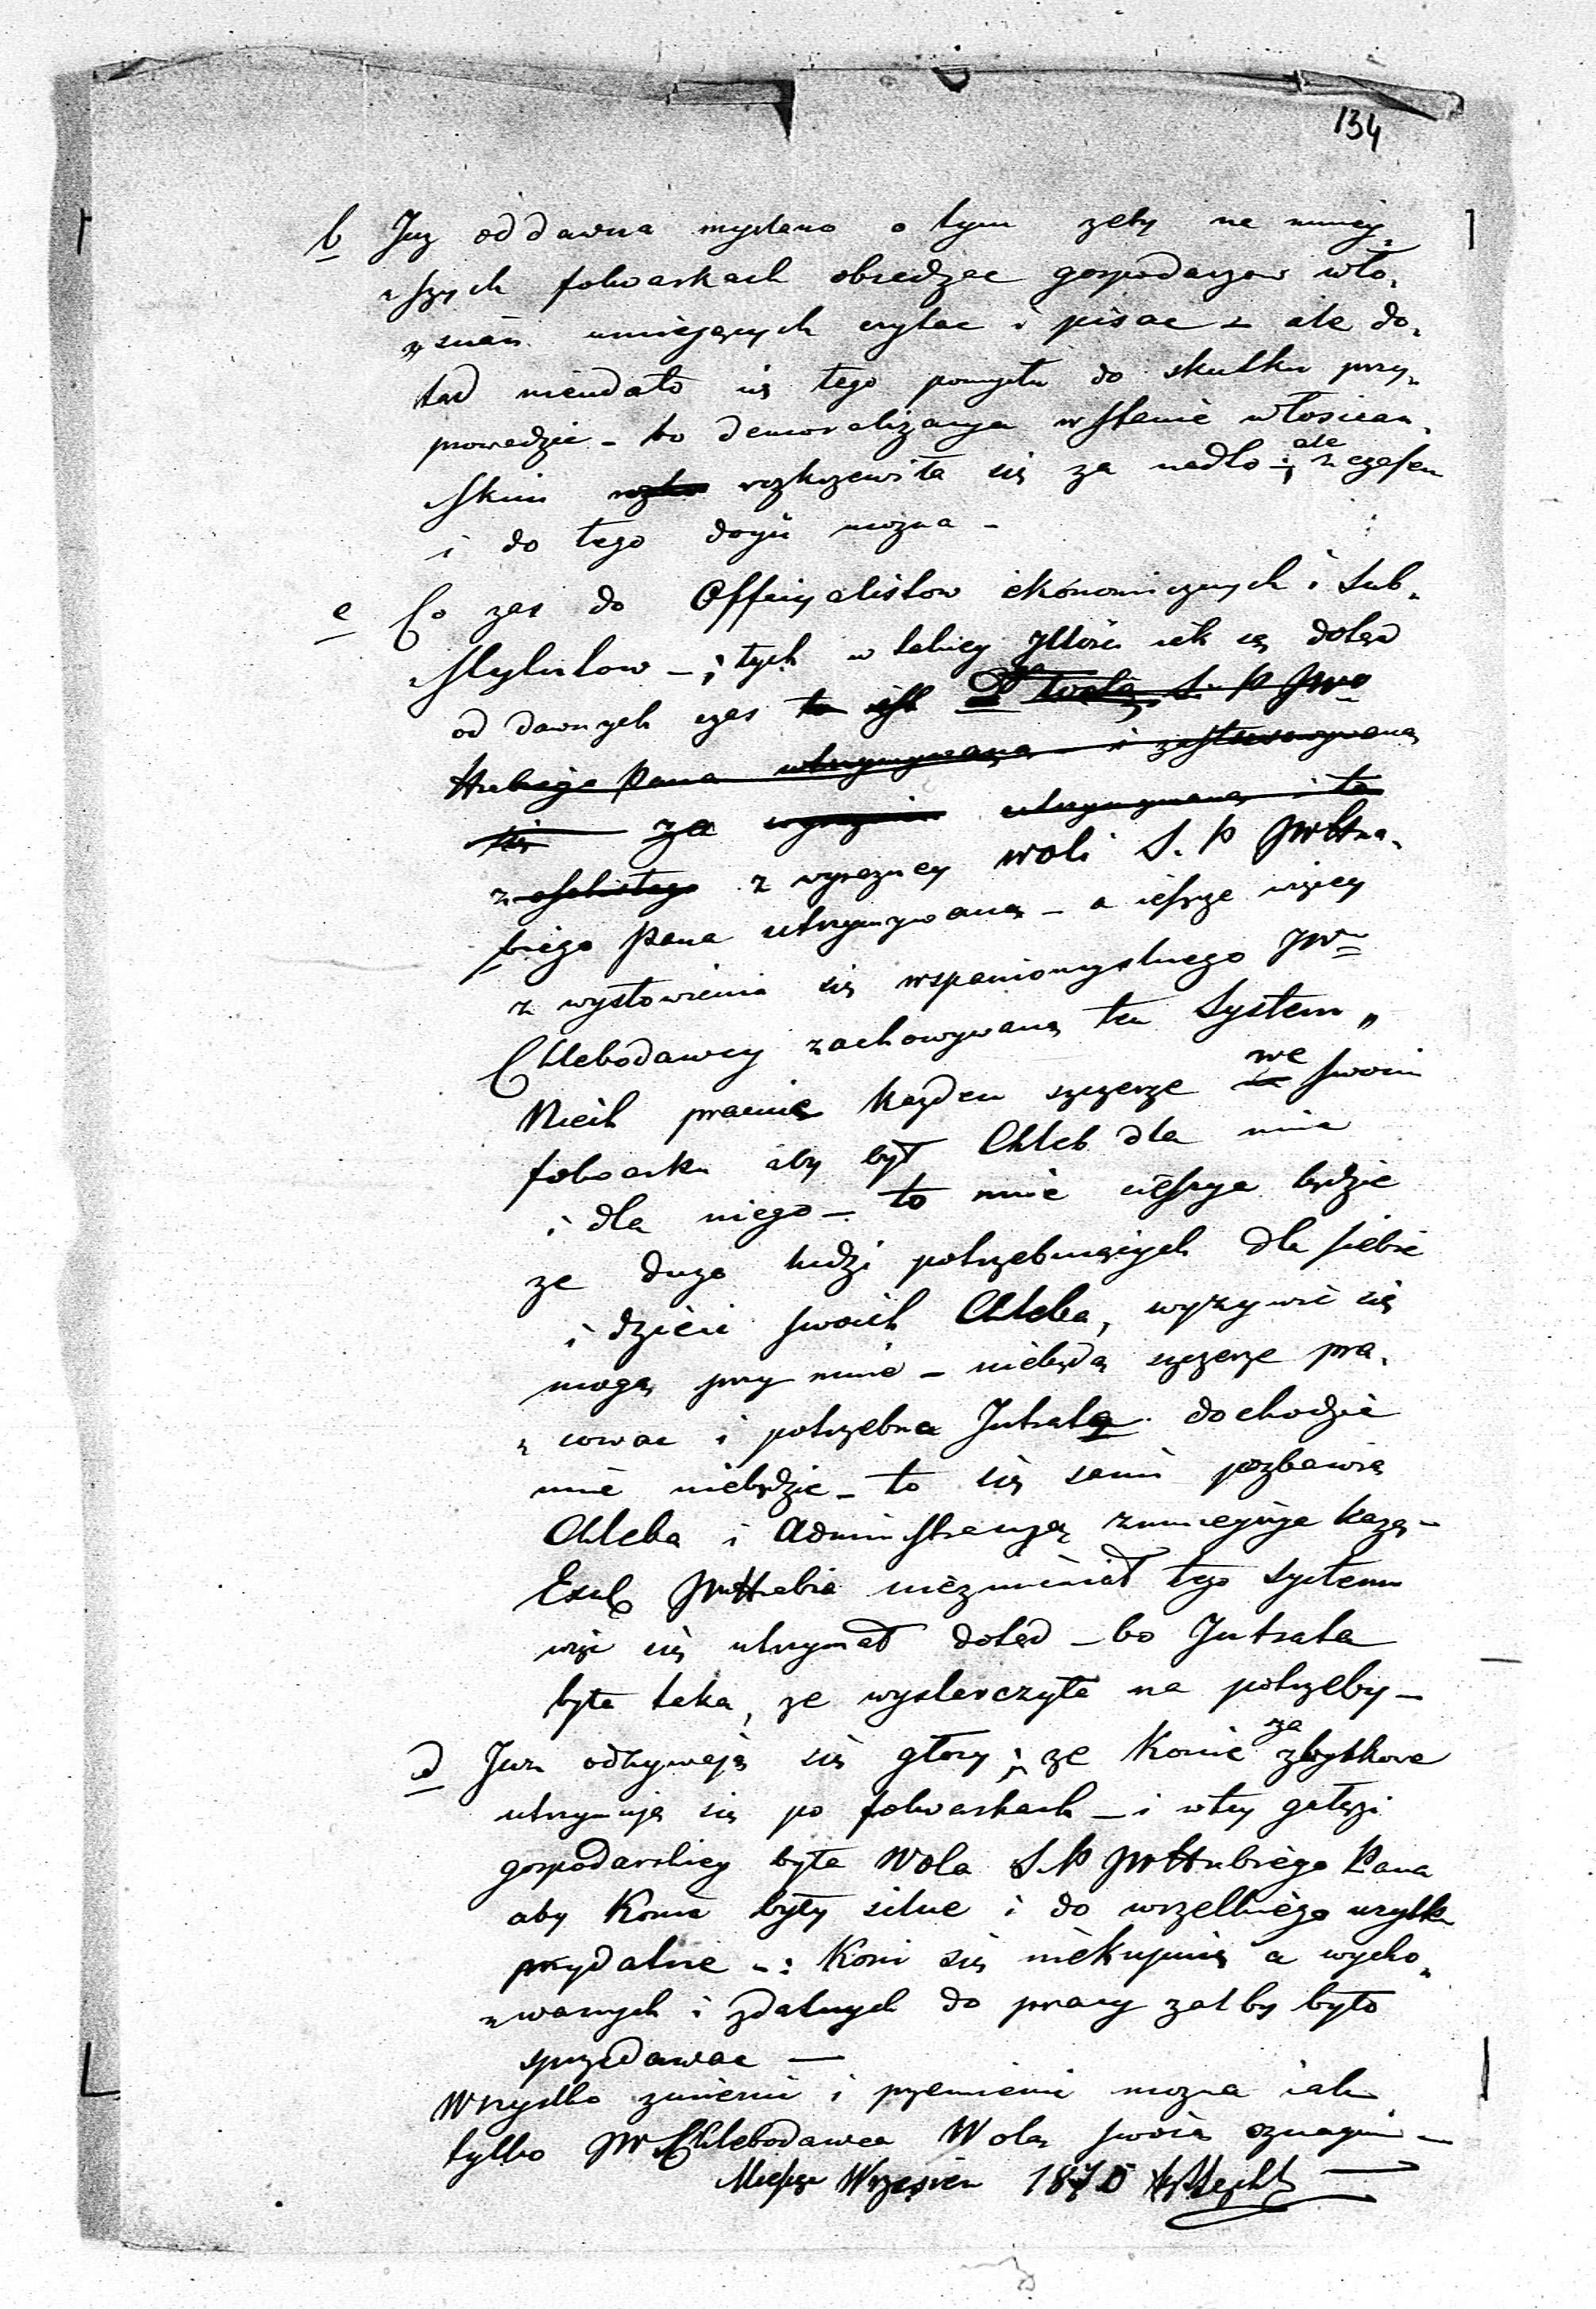 134
b Juz oddawna myslano o tym zeby na mniey„
„szych folwarkach obsedzac gospodarzow wło„
„scian umiejących czytac i pisac – ale do„
tad nieudało się tego pomysłu do skutku przy„
prowadzic – bo demoralizacya w stanie włoscian„
skim rozkrzewiła się za nadto –; ale z czasem
i do tego dojsc mozna –
c Co zas do Officyalistow ekonomicznych i Sub„
„stytutow –; tych w takiey Ilosci iak są dotąd
od dawnych czas to iest Wolą S. P JWo
Hrabiego Pana utrzymywaną – i zastosowywaną
się za utrzymywaną i to
z z wyrazney woli S. P JWHra„
biego Pana utrzymywaną – a iescze więcey
z wysłowienia się wspaniomyslnego JW
Chlebodawcy zachowywaną ten System „
Niech pracuie kazden szczerze we swoim
folwarku aby był Chleb dla mnie
i dla niego – to mnie cieszyc będzie
ze duzo ludzi potrzebuiących dla siebie
i dzieci swoich Chleba, wyzywic się
mogą przy mnie – niebędą szczerze pra„
„cowac i potrzebna Intrata dochodzic
mie niebędzie – to się sami pozbawią
Chleba i Administracyą zmnieyszyc kazę –
Exul JWHrabia niezmieniał tego systemu
więc się utrzymał dotąd – bo Intrata
była taka, ze wystarczyła na potrzeby –
d Juz odzywają się głosy; ze Konie za zbytkowe
utrzymują się po folwarkach – i w tey gałęzi
gospodarskiey była Wola S. P JWHrabiego Pana
aby Konie były silne i do wszelkiego uzytku
przydatne –: Koni się niekupuie a wycho„
„wanych i zdatnych do pracy zal by było
sprzedawac —
Wszystko zmienic i przemienic mozna iak
tylko JW Chlebodawca Wolą swoią oznaymi –
Miesiąc Wrzesien 1870